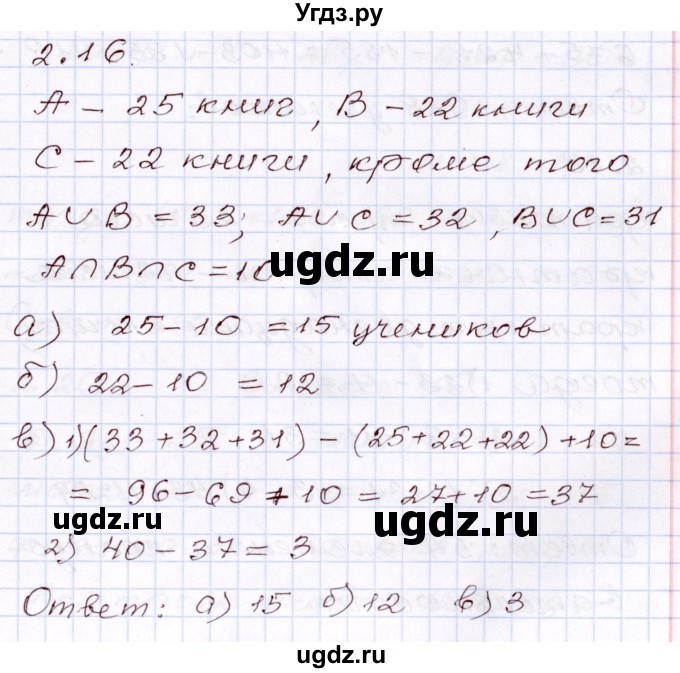 Угдз.ру
2.16.
А – 25 книг, В – 22 книги
С – 22 книги, кроме того
A∪B = 33; A∪C = 32, B∪C = 31
A∩B∩C = 10
ugdz.ru
а) 25 – 10 = 15 учеников
б) 22 – 10 = 12
в) 1) (33 + 32 + 31) – (25 + 22 + 22) + 10 =
= 96 – 69 + 10 = 27 + 10 = 37
ugdz.ru ugdz.ru
2) 40 – 37 = 3
Ответ: а) 15 б) 12 в) 3
ugdz.ru